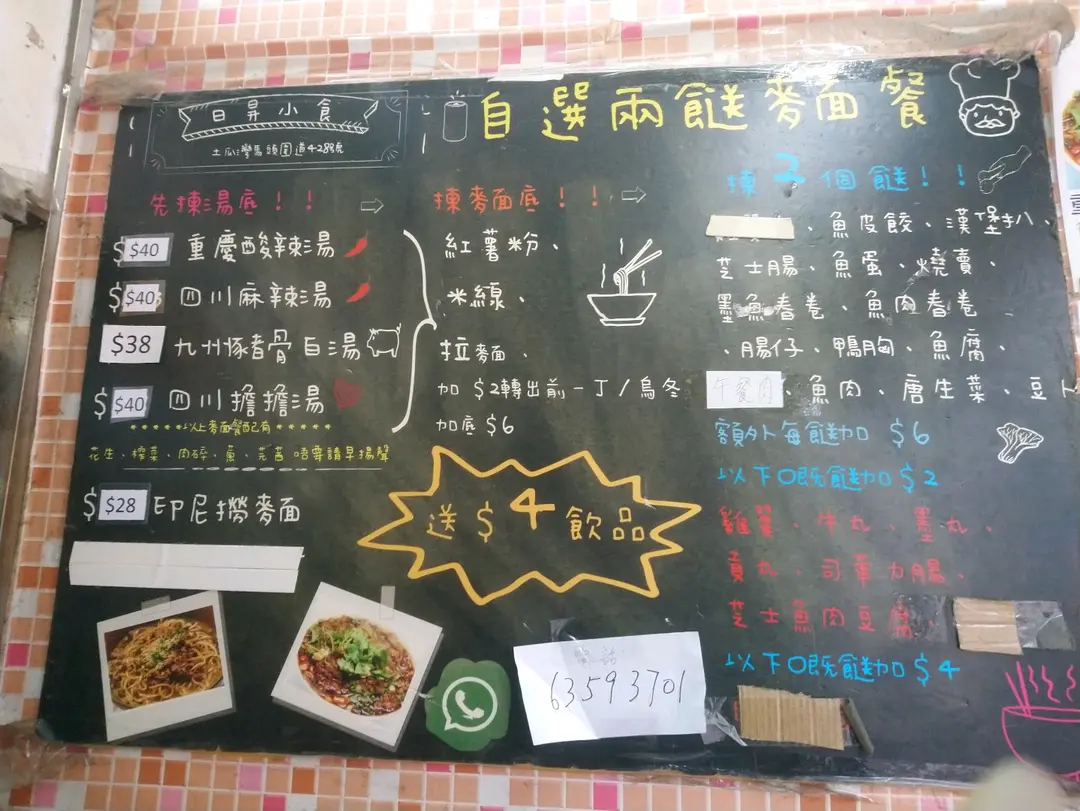 日昇小食
土瓜灣馬頭圍道428號
自選兩餸麥面餐
先揀湯底！！
$40 重慶酸辣湯
$40 四川麻辣湯
$38 九州豚骨白湯
$40 四川擔擔湯
以上麥面餐配有
花生、榨菜、肉碎、蔥、芫茜唔要請早揚聲
$28 印尼撈麥面
揀麥面底！！
紅薯粉、
米線、
拉麵、
加$2轉出前一丁/烏冬
加底$6
送$4飲品
揀2個餸！！
、魚皮餃、漢堡扒、
芝士腸、魚蛋、燒賣、
墨魚春卷、魚肉春卷
、腸仔、鴨胸、魚腐、
午餐肉、魚肉、唐生菜、豆卜
額外每餸加 $6
以下嘅餸加$2
雞翼、牛丸、墨丸、
貢丸、司華力腸、
芝士魚肉豆腐、
以下嘅餸加$4
電話
63593701